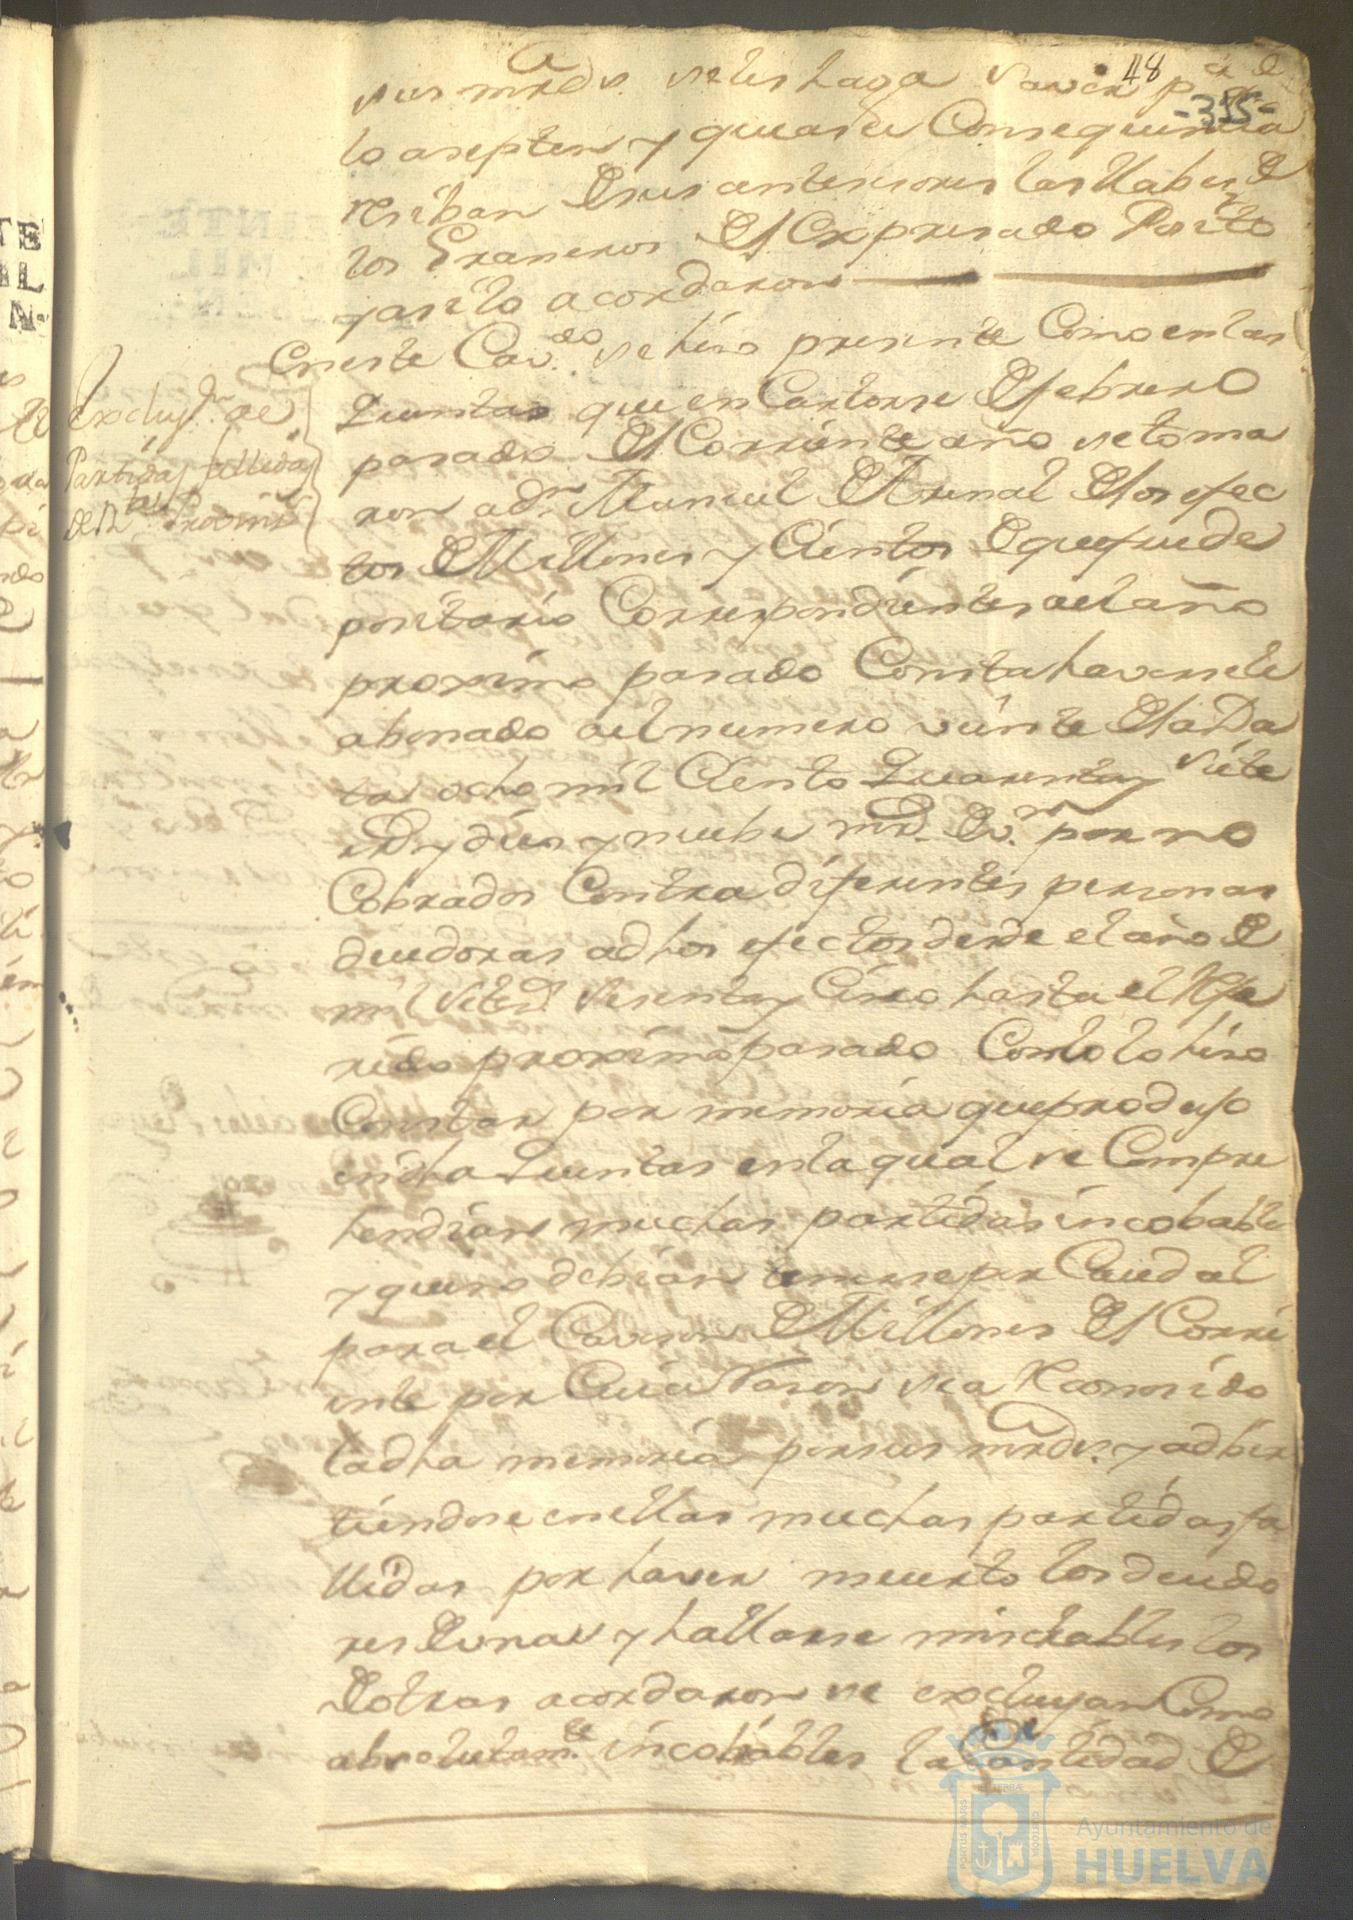 48
-315-
sus mrds. se les haga saver pa. qe.
lo asepten y que asu Consequencia
resiban de sus antesesores las llabes de
los Graneros del expresado Posito
y asi lo acordaron
En este Cavdo. se hiso presente Como en las
Exclusn. de
Partidas fallidas
de Rtas Provins
Quentas que en Catorse de febrero
pasado del Corriente año se toma
ron a dn. Manuel de Arenal de los efec
tos de Millones y Cientos de que fue de
positario Correspondientes al año
proximo pasado Consta haversele
abonado al numero veinte de la Da
ta ocho mil Ciento Quarenta y siete
rs. y dies y nuebe mrs. de vn. por no
Cobrados Contra diferentes personas
deudoras a dhos efectos desde el año de
mil setesd. sesenta y Cinco hasta el Refe
rido proximo pasado Como lo hiso
Constar por memoria que produjo
en dha Quentas en la qual se Compre
hendian muchas partidas incobables
y que no debian tenerse por Caudal
para el Caveson de Millones del Corri
ente por Cuia Rason sea Reconosido
la dha memoria por sus mrds. y adbir
tiendose en ellas muchas partidas fa
llidas por haver muerto los deudo
res de unas y hallarse miserables los
de otras acordaron se excluyan Como
absolutamte. incobables la Cantidad de
PORTUS MARIS
ET TERRÆ
CUSTODIA
Ayuntamiento de
HUELVA